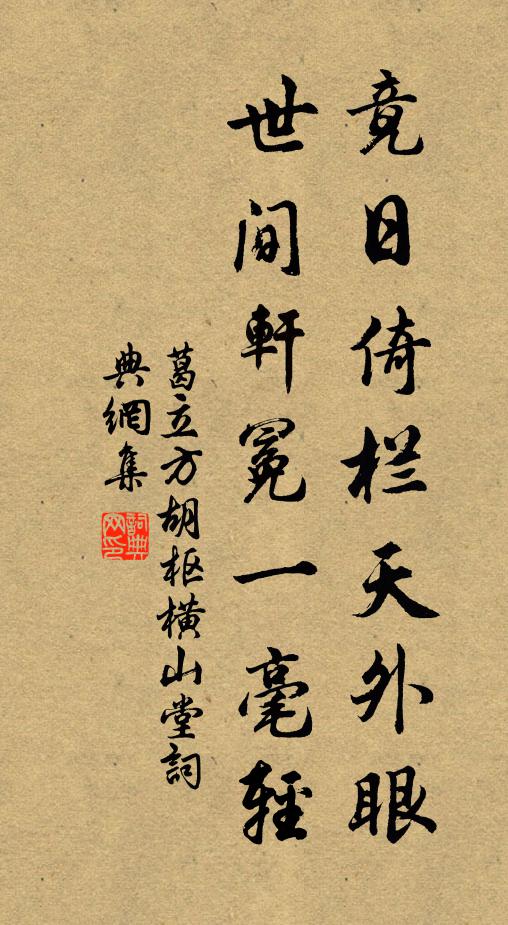 竟日倚栏天外眼
世间軒冕一毫轻
葛立方胡枢横山堂詞
典網集
詞典
网印